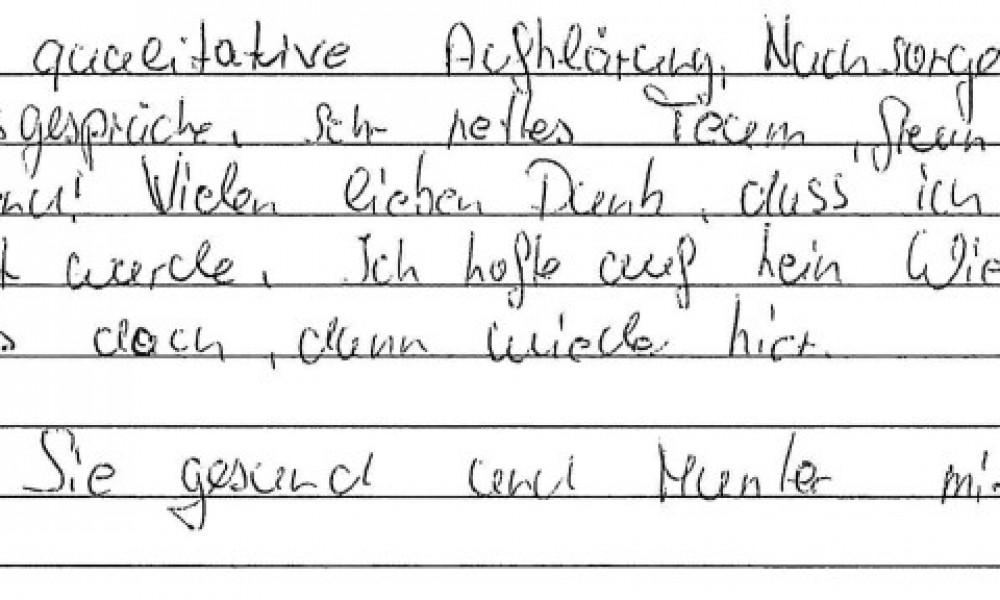 qualitative Aufklärung, Nachsorge
sgespräche, sehr nettes Team,
Vielen lieben Dank, dass ich
t wurde. Ich hoffe auf kein Wie
s doch, dann wieder hier.
Sie gesund und Munter mi